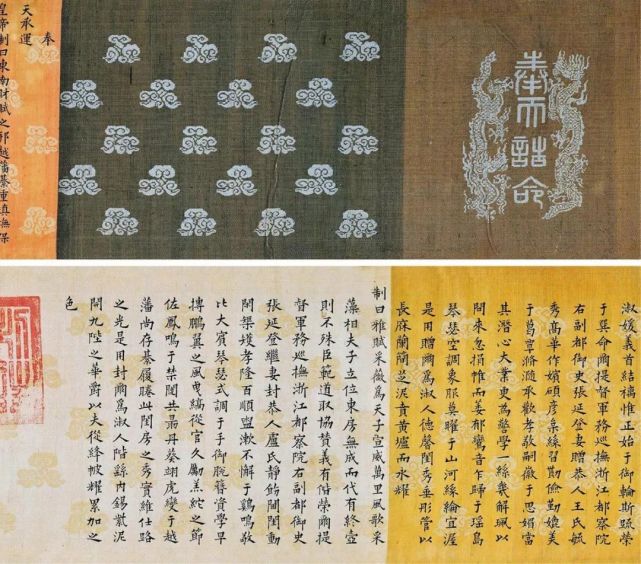 奉天誥命
奉
天承運
皇帝制曰東南財賦之郡越藩綦重眞撫保
淑媛義首結褵惟正始于御輪斯疏榮
于巽命爾提督軍務巡撫浙江都察院
右副都御史張延登妻贈恭人王氏毓
秀高華作嬪碩彥絲習勤儉勤媿美
于葛覃滫瀡承歡孝敬嗣徽于思媚當
其潛心大業更爲警學一絲幾解珮以
問來忽損帷而委郁鸞音乍歸于瑶島
琴瑟空調象服莫曜于山河絲綸宜渥
是用贈爾爲淑人德馨閨秀垂彤管以
長麻蘭簡芝泥賁黃壚而永耀
制曰雅賦采薇爲天子宣威萬里風歌采
藻相夫子立位東房無成而代有終壼
則不殊臣範道取協贊義有階榮爾提
督軍務巡撫浙江都察院右副都御史
張延登繼妻封恭人盧氏靜閫閑動
閑榘矱孝隆百順盥漱不懈于鷄鳴敬
比大賓琴瑟式調于手御脫簪資學早
摶鵬翼之風曳縞從官久勵羔紽之節
佐鳳鳴于禁闥共肅丹棊翊虎變于越
藩尚存綦履睠此閨房之秀實維仕路
之光是用封爾爲淑人階絲内錫紫泥
開九陛之華爵以夫從絳帔耀累加之
色